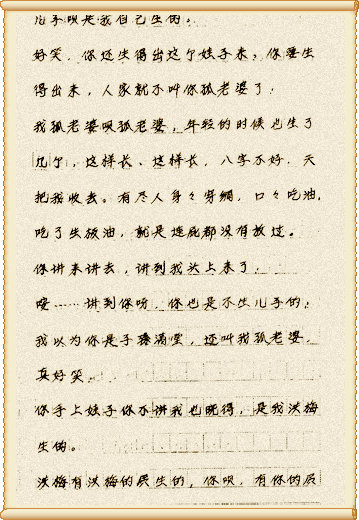 儿手呗是我自己生的。
好笑，你还生得出这个娃子来，你要生
得出来，人家就不叫你孤老婆了！
我孤老婆呗孤老婆，年轻的时候也生了
几个，这样长、这样长，八字不好，天
把我收去。有尽人身々穿绸，口々吃油，
吃了生板油，就是连屁都没有放过。
你讲来讲去，讲到我头上来了，
嗳……讲到你呀，你也是不生儿子的，
我以为你是子孙满堂，还叫我孤老婆，
真好笑。
你手上娃子你不讲我也晓得，是我洪梅
生的。
洪梅有洪梅的辰生的，你呗，有你的辰